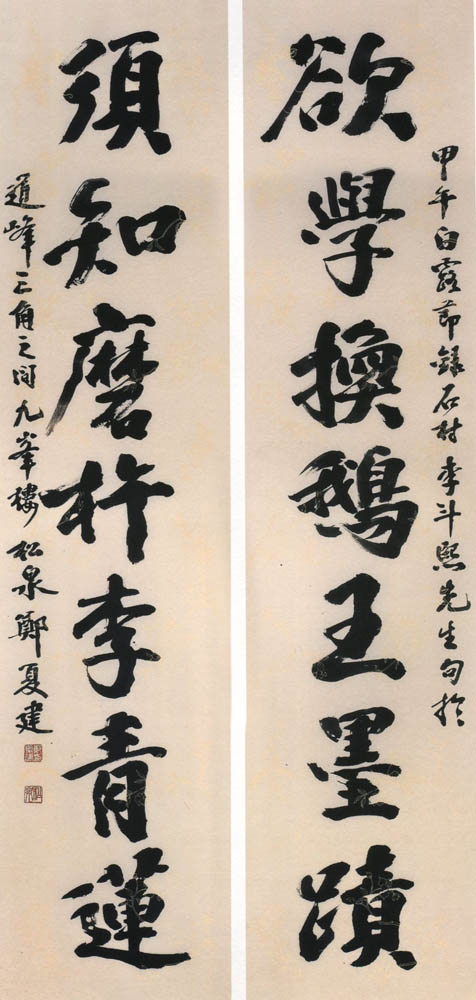 欲學換鵝王墨蹟
須知磨杵李青蓮
甲午白露節錄石村李斗熙先生句於
道峰三角之間九峯樓松泉鄭夏建